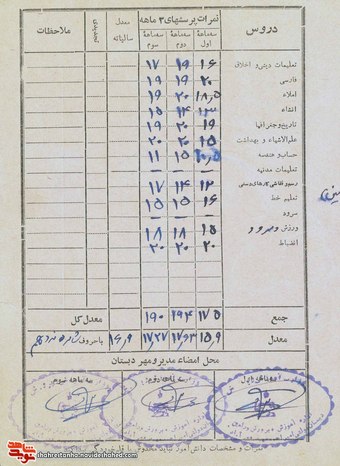 دروس نمرات پرسشهای ۳ ماهه معدل سالیانه تجدیدی ملاحظات
سه‌ماهۀ اول سه‌ماهۀ دوم سه‌ماهۀ سوم
تعلیمات دینی و اخلاق ۱۶ ۱۹ ۱۷
فارسی ۲۰ ۱۹ ۱۹
املاء ۱۸,۵ ۲۰ ۱۹
انشاء ۱۳ ۱۴ ۱۵
تاریخ و جغرافیا ۱۹ ۲۰ ۱۹
علم‌الاشیاء و بهداشت ۱۵ ۲۰ ۲۰
حساب و هندسه ۱۰,۵ ۱۵ ۱۱
تعلیمات مدنیه
رسم و نقاشی کارهای دستی ۱۲ ۱۴ ۱۷
تعلیم خط ۱۶ ۱۵ ۱۵
سرود
ورزش و سرود ۱۵ ۱۸ ۱۸
انضباط ۲۰ ۲۰ ۲۰
جمع ۱۷۵ ۱۹۴ ۱۹۰ معدل کل
معدل ۱۵,۹ ۱۷,۶۳ ۱۷,۲۷ ۱۶,۹ با حروف
محل امضاء مدیر و مهر دبستان
سه ماهه اول سه ماهه دوم سه ماهه سوم
shahrestanha.navideshahed.com